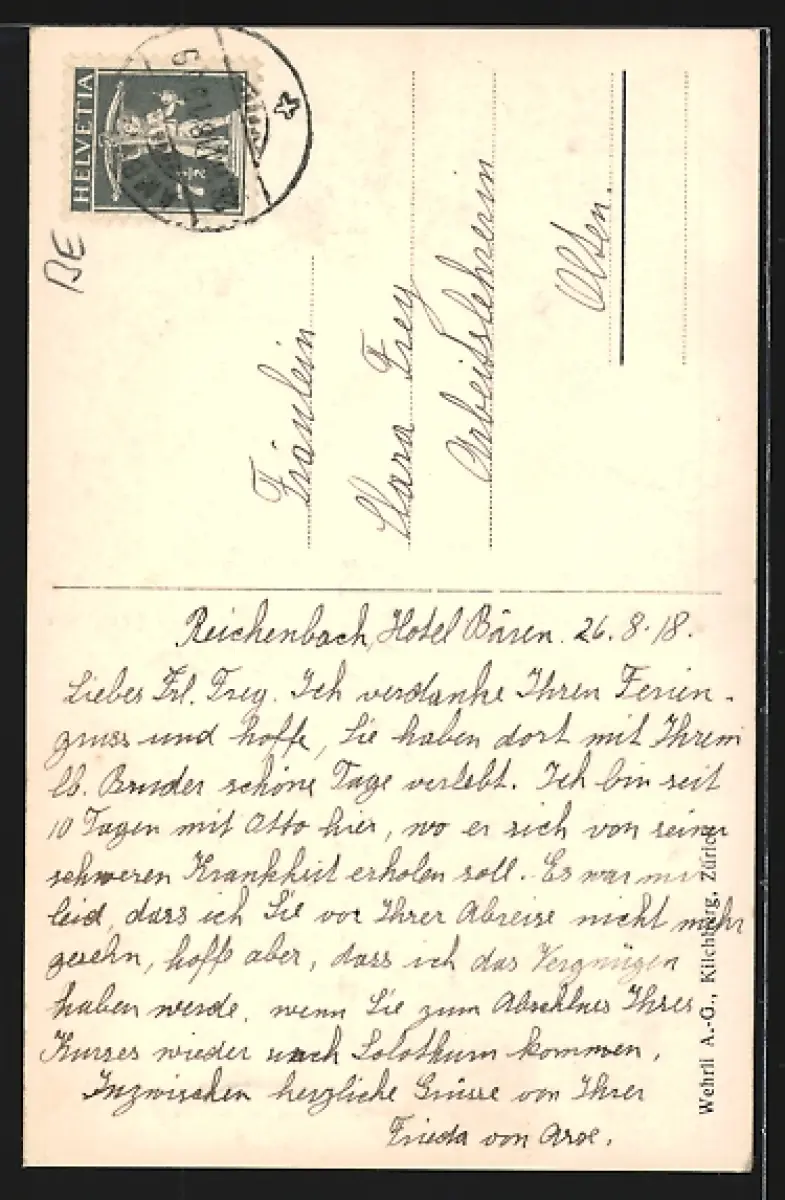 HELVETIA
7½
BE
Fräulein
Clara Frey
Arbeitslehrerin
Olten.
Reichenbach, Hotel Bären. 26.8.18.
Liebes Frl. Frey. Ich verdanke Ihren Ferien-
gruss und hoffe, Sie haben dort mit Ihrem
lb. Bruder schöne Tage verlebt. Ich bin seit
10 Tagen mit Otto hier, wo er sich von seiner
schweren Krankheit erholen soll. Es war mir
leid, dass ich Sie vor Ihrer Abreise nicht mehr
gesehn, hoffe aber, dass ich das Vergnügen
haben werde, wenn Sie zum Abschluss Ihres
Kurses wieder nach Solothurn kommen.
Inzwischen herzliche Grüsse von Ihrer
Frieda von Arx.
Wehrli A.-G., Kilchberg, Zürich